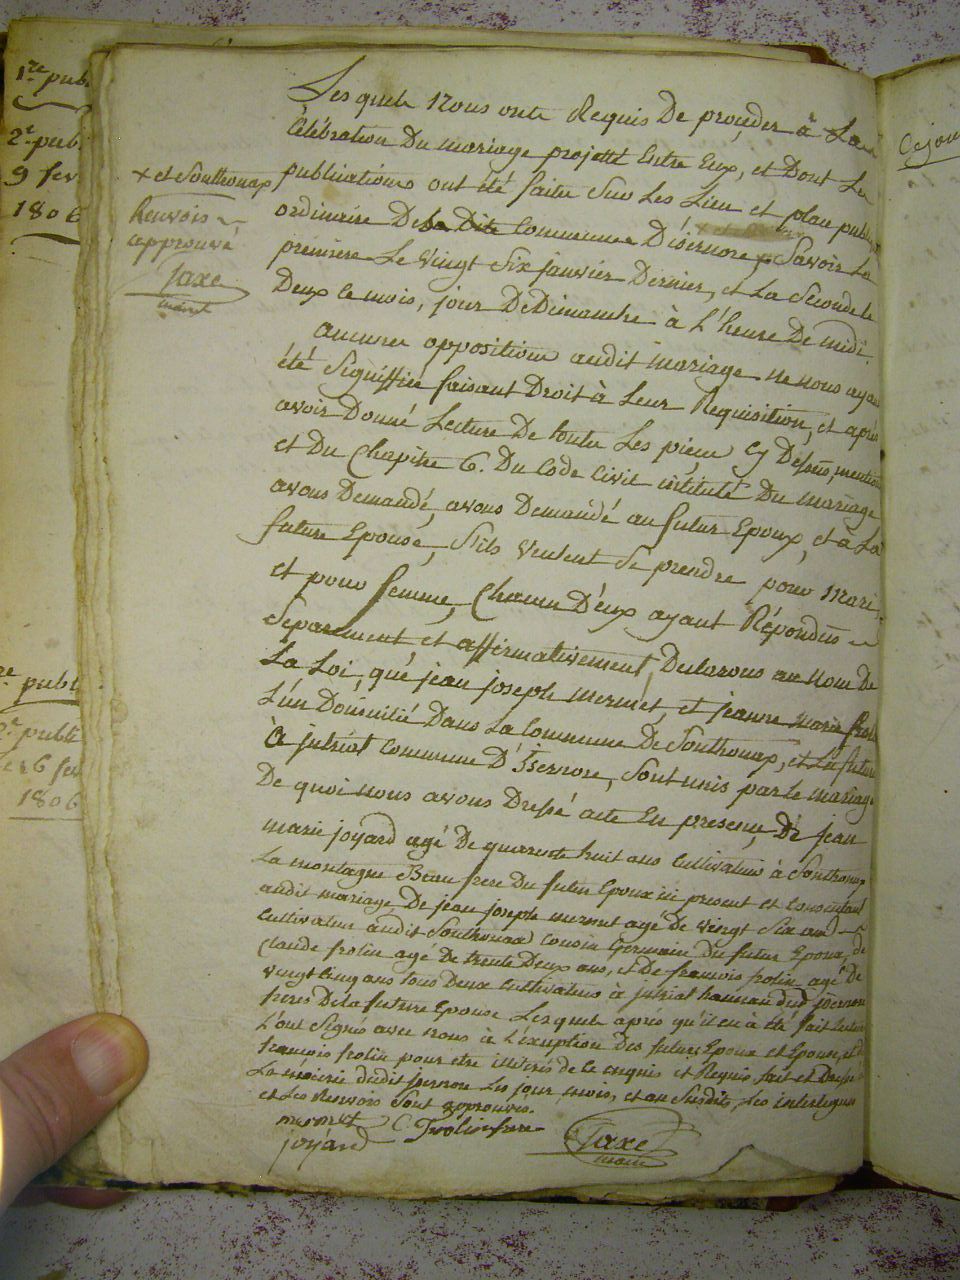 1re pub
2e pub
9 fev
1806
re publ
2e publi
6 fev
1806
x et Southonax
Renvois
approuvé
Jaxe
maire
Les quels nous onts Requis De proceder à La
Célébration Du mariage projetté Entre Eux, et Dont Les
publications ont été faites Sur Les Lieu et place publique
ordinaire De la Dite Commune D'isernore x Savoir La
première Le Vingt Six janvier Dernier, et La Seconde le
Deux ce mois, jour De Dimanche à L'heure De midi.
aucune opposition audit mariage ne nous ayant
été Signiffiée faisant Droit à Leur Requisition, et après
avoir Donné Lecture De toutes Les pieces cy Dessus, mention
et Du Chapitre 6. Du Code Civil intitulé Du mariage
avons Demandé, avons Demandé au futur Epoux, et à La
future Epouse, S'ils Veulent Se prendre pour mari
et pour femme, Chacun D'eux ayant Répondus
Separement, et affirmativement, Declarons au Nom De
La Loi, que jean joseph mermet, et jeanne marie frolin
L'un Domicilié Dans La Commune De Southonax, et La future
à jutriat commune D'isernore, Sont unis par Le mariage
De quoi nous avons Dressé acte En presence, De jean
marie joyard agé De quarente huit ans Cultivateur à Southonax
La montagne Beau frere Du futur Epoux ici present et Consentant
audit mariage De jean joseph mermet agé De Vingt Six ans
Cultivateur audit Southonax Cousin Germain Du futur Epoux, de
Claude frolin agé De trente Deux ans, et De francois frolin agé De
Vingt Cinq ans tous Deux Cultivateurs à jutriat hameau dud isernore
freres De La future Epouse Les quels après qu'il en à été fait Lecture
L'ont Signés avec nous à L'exeption Des futurs Epoux et Epouse, et de
francois frolin pour etre illitérés de ce enquis et Requis fait et Dressé
La mairie dudit isernore Les jour, mois, et an Susdits, Les interlignes
et Les Renvois Sont approuvés.
mermet C. frolin frere
joyard
Jaxe
maire